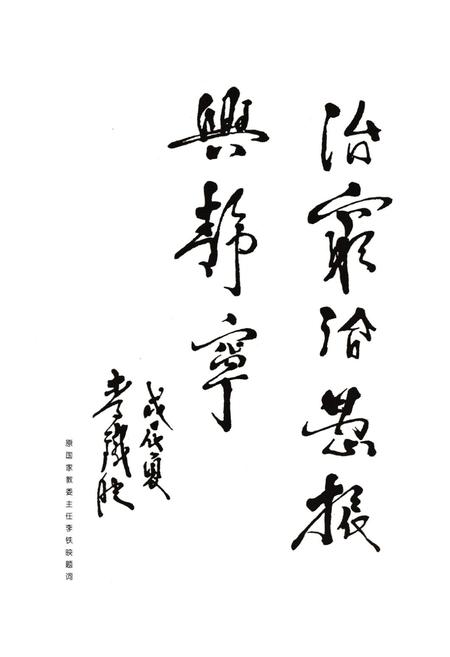 治窮治愚振
興静寧
戊辰夏
李鐵映
原国家教委主任李铁映题词